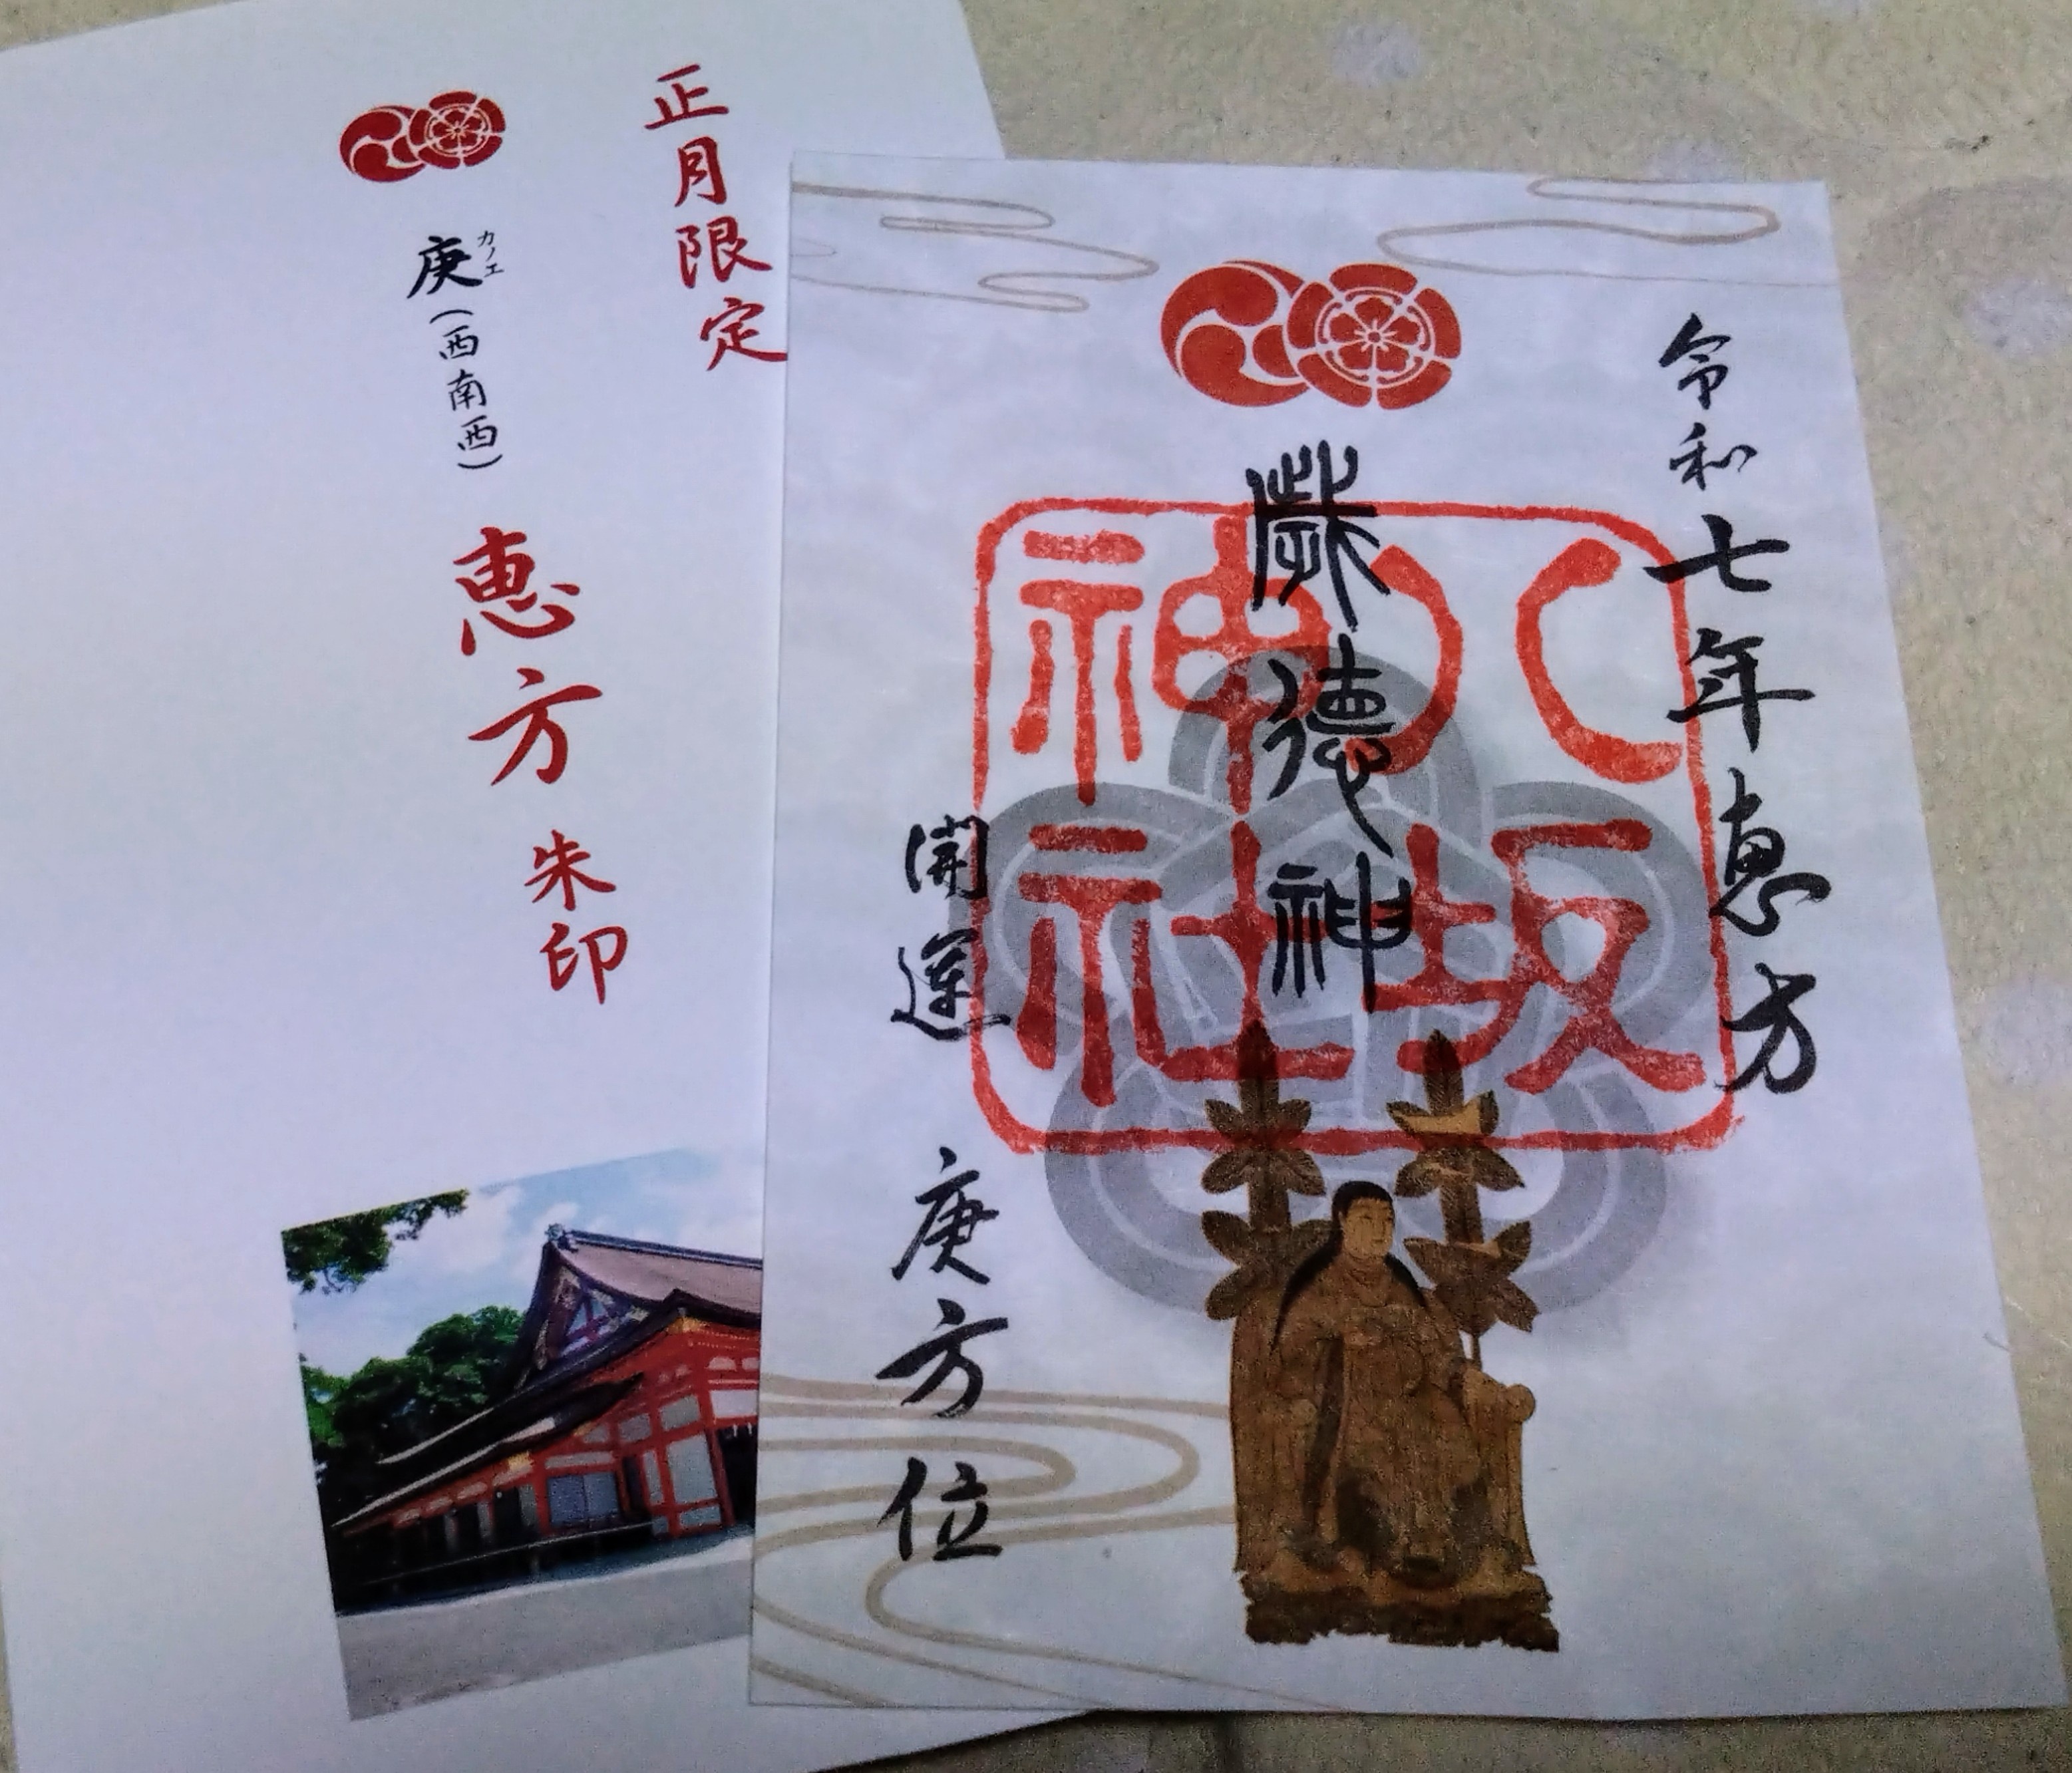 正月限定
庚(西南西)
カノエ
恵方朱印
令和七年恵方
歳徳神
八坂
神社
開運
庚方位